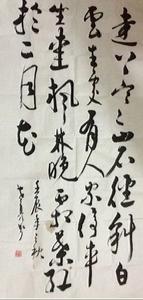 遠上寒山石徑斜白
雲生處有人家停車
坐愛楓林晚霜葉紅
於二月花
壬辰年之秋